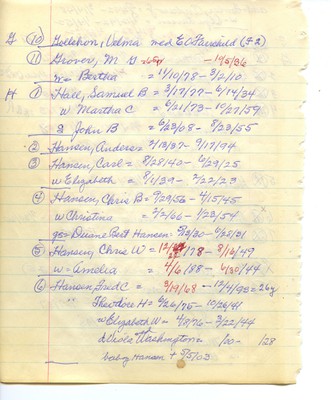 G (10) Gollehon, Velma med EO Fairchild (F2)
(11) Grover, M G - 1/5/36
w= Bertha = 11/10/78 - 3/2/10
H (1) Hall, Samuel B = 3/17/77 - 6/14/34
w Martha C = 6/21/73 - 10/27/59
s John B = 6/23/08 - 8/23/55
(2) Hansen, Anders = 2/13/37 - 9/17/94
(3) Hansen, Carl = 8/28/40 - 6/29/25
w Elizabeth = 8/1/39 - 2/22/23
(4) Hansen, Chris B = 9/29/56 - 4/15/45
w Christina = 2/2/66 - 1/23/54
gs = Duane Bert Hansen = 8/2/30 - 6/28/31
(5) Hansen, Chris W = /78 - 8/16/49
w = Amelia = 4/6/88 - 6/30/44
(6) Hansen, Fred C = 3/19/68 - 12/4/93 = 26y
" Theodore H = 6/26/75 - 10/26/41
w Elizabeth W = 4/8/76 - 3/22/44
d Viola Washington = /00 - /28
baby Hansen + 9/5/03